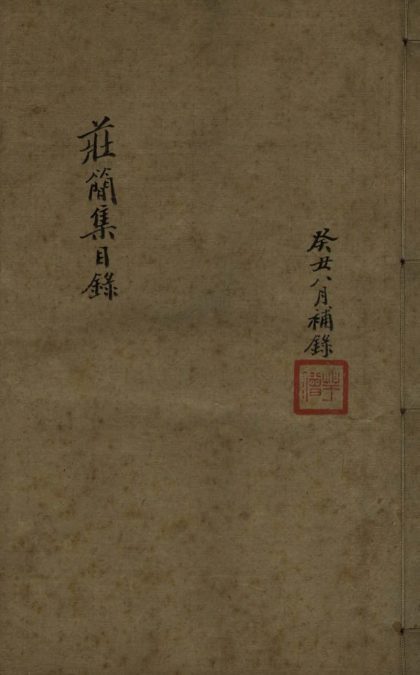 癸丑八月補錄
莊簡集目錄